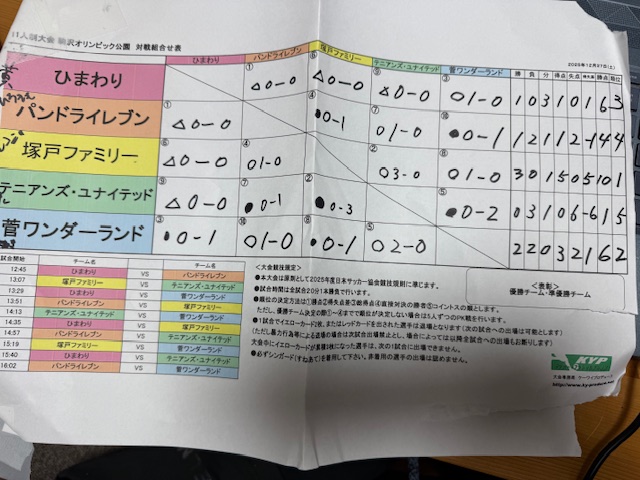 11人制大会 駒沢オリンピック公園 対戦組合せ表
2025年12月27日(土)
ひまわり パンドライレブン 塚戸ファミリー テニアンズ・ユナイテッド 菅ワンダーランド 勝 負 分 得点 失点 得失差 勝点 順位
ひまわり ①△0-0 ⑥△0-0 ⑨△0-0 ③○1-0 1 0 3 1 0 1 6 3
パンドライレブン ①△0-0 ④●0-1 ⑦○1-0 ⑩●0-1 1 2 1 1 2 -1 4 4
塚戸ファミリー ⑥△0-0 ④○1-0 ②○3-0 ⑧○1-0 3 0 1 5 0 5 10 1
テニアンズ・ユナイテッド ⑨△0-0 ⑦●0-1 ②●0-3 ⑤●0-2 0 3 1 0 6 -6 1 5
菅ワンダーランド ③●0-1 ⑩○1-0 ⑧●0-1 ⑤○2-0 2 2 0 3 2 1 6 2
試合開始 チーム名 チーム名
12:45 ひまわり VS パンドライレブン
13:07 塚戸ファミリー VS テニアンズ・ユナイテッド
13:29 ひまわり VS 菅ワンダーランド
13:51 パンドライレブン VS 塚戸ファミリー
14:13 テニアンズ・ユナイテッド VS 菅ワンダーランド
14:35 ひまわり VS 塚戸ファミリー
14:57 パンドライレブン VS テニアンズ・ユナイテッド
15:19 塚戸ファミリー VS 菅ワンダーランド
15:40 ひまわり VS テニアンズ・ユナイテッド
16:02 パンドライレブン VS 菅ワンダーランド
<大会競技規定>
●本大会は原則として2025年度日本サッカー協会競技規則に準じます。
●試合時間は全試合20分1本勝負で行います。
●順位の決定方法は①勝点②得失点差③総得点④直接対決の勝者⑤コイントスの順とします。
ただし、優勝チーム決定の際①~④までで順位が決定しない場合は5人ずつのPK戦を行います。
●1試合でイエローカード2枚、またはレッドカードを出された選手は退場となります(次の試合への出場は可能とします)
(ただし暴力行為等による退場の場合は次試合出場禁止とし、場合によっては以降全試合への出場もお断りします)
大会中にイエローカードが累積3枚になった選手は、次の1試合に出場できません。
●必ずシンガード(すねあて)を着用して下さい。非着用の選手の出場は認めません。
<表彰>
優勝チーム・準優勝チーム
KYP
http://www.ky-produce.net